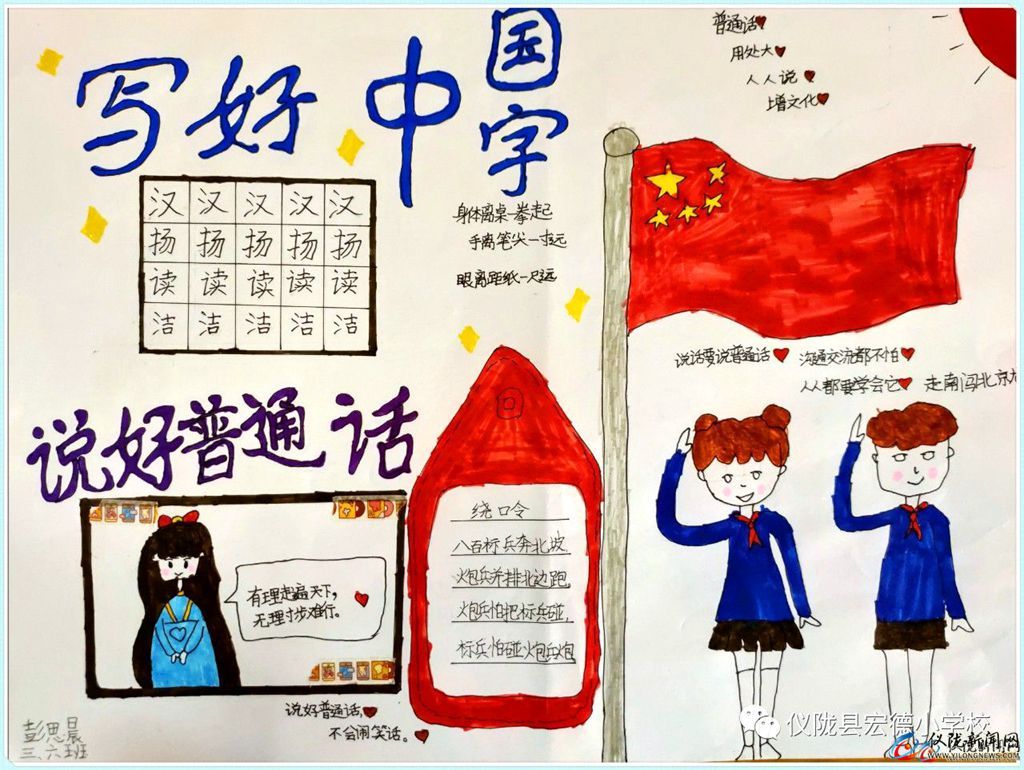 写好中国字
普通话
用处大
人人说
增文化
汉汉汉汉汉
扬扬扬扬扬
读读读读读
洁洁洁洁洁
身体离桌一拳起
手离笔尖一寸远
眼离距纸一尺远
说话要说普通话 沟通交流都不怕
人人都要学会它 走南闯北京
说好普通话
绕口令
八百标兵奔北坡,
炮兵并排北边跑,
炮兵怕把标兵碰,
标兵怕碰炮兵炮
有理走遍天下,
无理寸步难行。
说好普通话,
不会闹笑话。
彭思晨
三、六班
仪陇县宏德小学校
仪陇新闻网
WWW.YILONGNEWS.COM